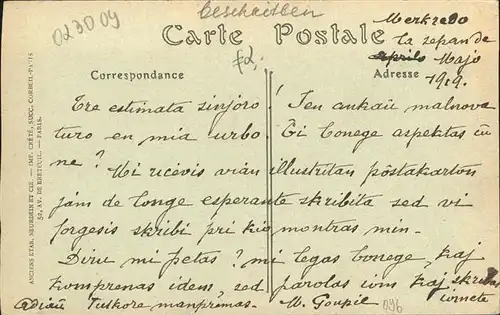 023D09
beschrieben
Carte Postale
£2,
Merkredo
la sepan de
Aprilo Majo
1919.
Correspondance
Adresse
Tre estimata sinjoro! Jen ankaŭ malnova
turo en mia urbo. Ĝi bonege aspektas ĉu
ne? Mi ricevis vian illustritan pôstakarton
jam de longe esperante skribita sed vi
forgesis skribi pri kio montras min.
Diru mi petas? mi legas bonege, kaj
komprenas idem, sed parolas iom kaj skribas
iomete
Adiaŭ Tutkore manpremas. M. Goupil
096
ANCIENS ÉTAB. NEURDEIN ET CIE. — IMP. CRÉTÉ, SUCC. CORBEIL-PARIS
52, AV. DE BRETEUIL. — PARIS.